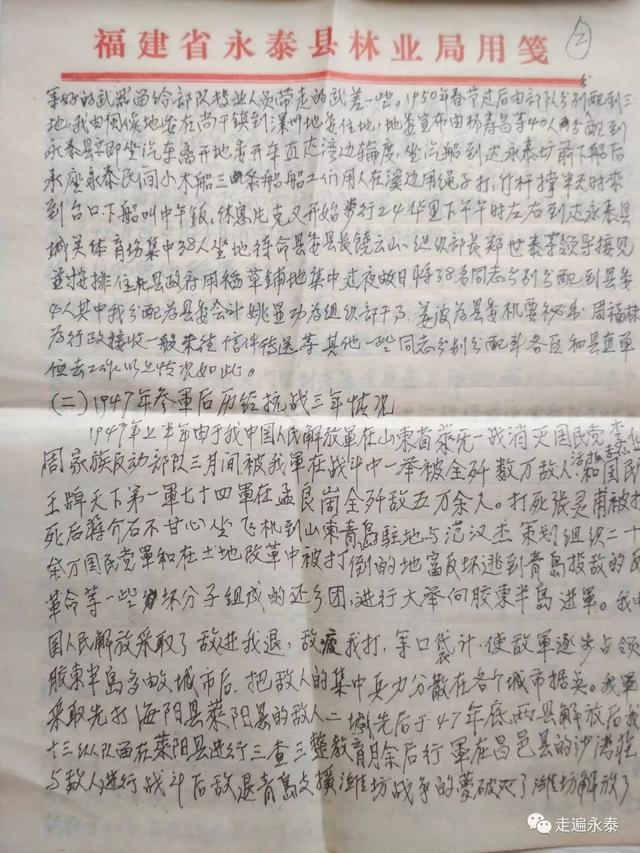 福建省永泰县林业局用笺
②
等好的武器留给部队接业人员带走的武差一些。1950年春节过后由部队分别配到三
地,我由闽侯地委在尚干镇到地委住地,地委宣布由杨寿昌等40人分配到
永泰县立即坐汽车离开地委开车直达湾边轮度,坐汽船到达永泰坊前下船后
承座永泰民间小木船三四条船船工们用人在溪边用绳子打,竹杆撑半天时来
到台口下船叫中午饭,休息片克又开始步行24华里下午午时左右到达永泰县
城关体育场集中38人坐地待命县委县长饶云山、组织部长郑世泰等领导接见
并按排住县政府用稻草铺地集中过夜明日将38名同志分别分配到县委
4人其中我分配为县委会计姚显功为组织部干了,姜波为县委机要秘书,周福林
为行政接收一般来往信件传送等其他一些同志分别分配到各区和县直单
位去工作以上情况如此。
(二)1947年参军后历经抗战三年情况
1947年上半年由于我中国人民解放军在山东省莱芜一战消灭国民党李仙
周家族反动部队三月间被我军在战斗中一举被全歼数万敌人和国民
王牌天下第一军七十四军在孟良崮全歼敌五万余人。打死张灵甫被打
死后蒋介石不甘心坐飞机到山东青岛驻地与范汉杰策划组织二十
余万国民党军和在土地改革中被打倒的地富反坏逃到青岛投敌的反
革命等一些坏分子组成的还乡团,进行大举向胶东半岛进军。我中
国人民解放采取了敌进我退,敌疲我打,等口袋计,使敌军逐步占领
胶东半岛多由城市后,把敌人的集中兵力分散在各个城市据关。我军
采取先打海阳县莱阳县的敌人二城先后于47年底两县解放后我
十三纵队西在莱阳县进行三查三整教育月余后行军在昌邑县的沙湾庄
与敌人进行战斗后敌退青岛支撑潍坊战争的梦破灭了潍坊解放了
走遍永泰